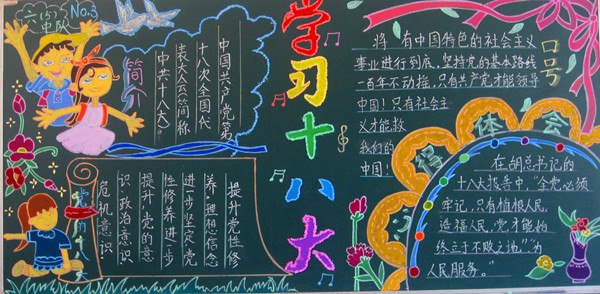 六(5)
中队
No.3
简介
中国共产党第
十八次全国代
表大会简称
中共十八大。
提升党性修
养,理想信念
进一步坚定党
性修养进一步
提升党的意
识政治意识
危机意识
学习十八大
口号
将 有中国特色的社会主义
事业进行到底,坚持党的基本路线
一百年不动摇,只有共产党才能领导
中国!只有社会主
义才能救
我们的
中国!
体会
在胡总书记的
十八大报告中,"全党必须
牢记,只有植根人民、
造福人民,党才能始
终立于不败之地","为
人民服务。"